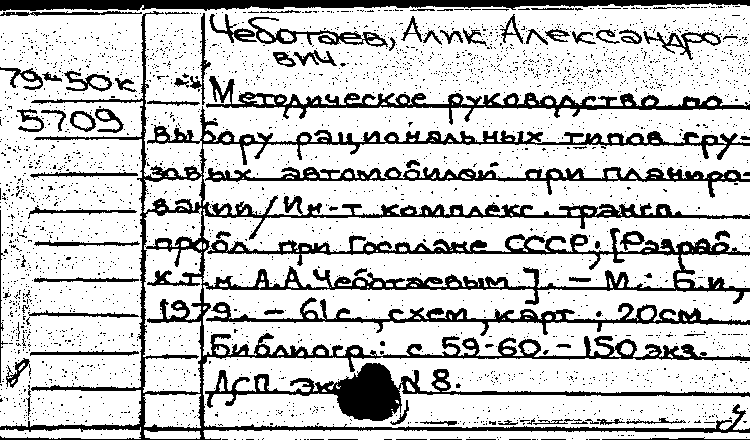 Чеботаев, Алик Александро-
вич.
79-50к
5709
Методическое руководство по
выбору рациональных типов гру-
зовых автомобилей при планиро-
вании / Ин-т комплекс. трансп.
пробл. при Госплане СССР; [Разраб.
к.т.н. А.А. Чеботаевым]. - М.: Б.и.,
1979. - 61 с., схем, карт.; 20см.
Библиогр.: с 59-60. - 150 экз.
Дсп. N 8.